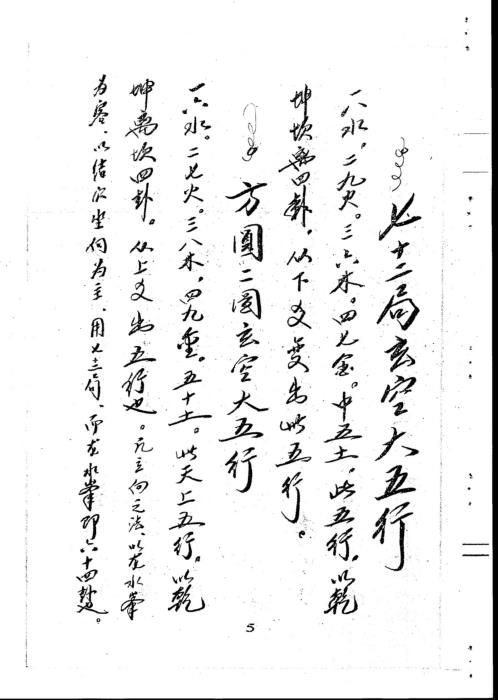 七十二局玄空大五行
一八水。二九火。三六木。四七金。中五土，此五行，以乾
坤坎离四卦，从下爻变出此五行。
方圓二图玄空大五行
一六水。二七火。三八木，四九金。五十土。此天上五行。以乾
坤离坎四卦。从上爻出五行也。凡立向之法、以龙水峯
为客、以结穴坐向为主、用七二局、而龙水峯即六十四卦也。
5